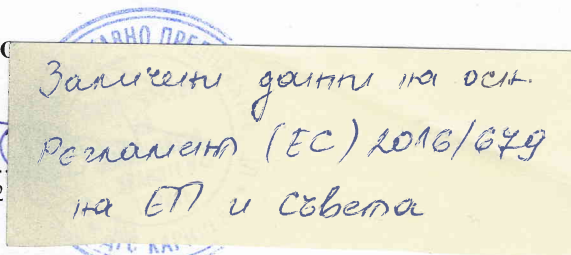 Заличени данни на осн.
Регламент (ЕС) 2016/679
на ЕП и Съвета